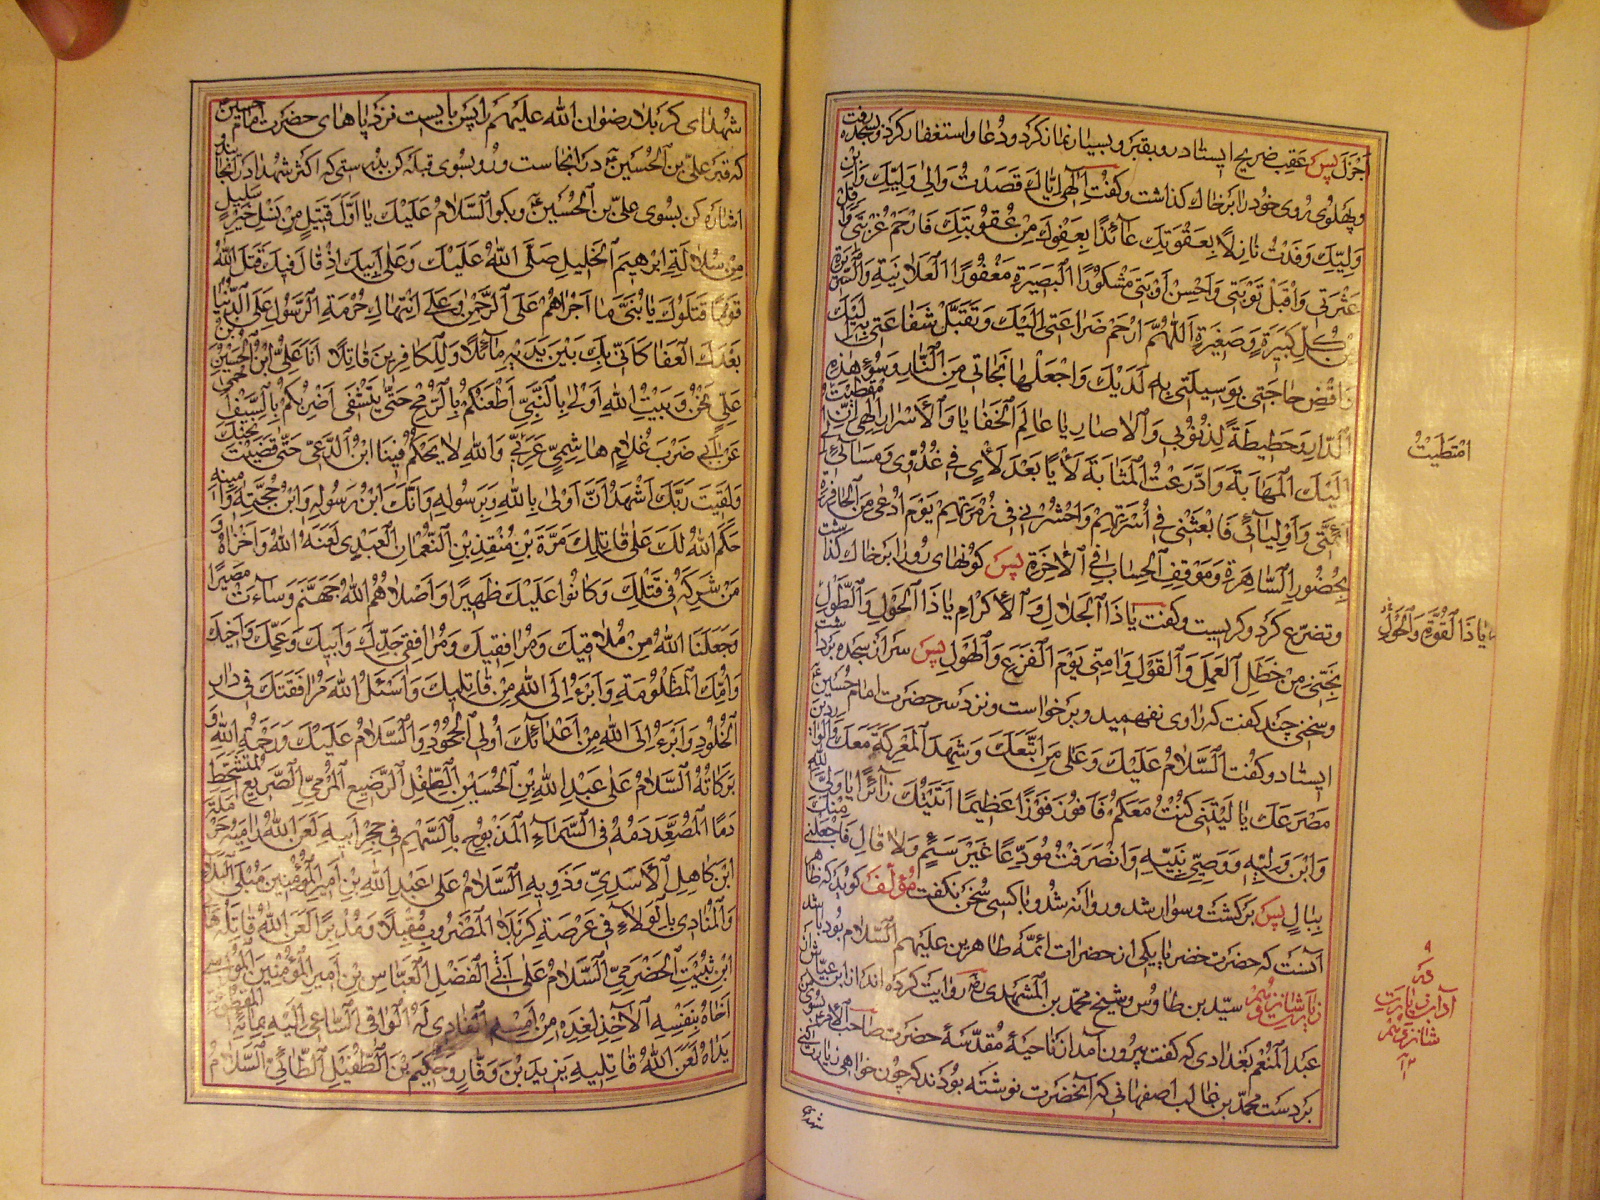 اجزل پس عقب ضریح ایستاد رو بقبر و بسیار نماز کرد و دعا و استغفار کرد و بسجده رفت
و پهلوی روی خود را بر خاک گذاشت و گفت الهی ایاک قصدت و الی ولیک وابن
ولیک وفدت نازلا بعقوتک عائذا بعفوک من عقوبتک فارحم غربتی واقل
عثرتی واقبل توبتی واحسن اوبتی مشکورا البصیرة مغفورا العلانیة والسریرة
من کل کبیرة وصغیرة اللهم ارحم ضراعتی الیک وتقبل شفاعتی بولیک
واقض حاجتی بوسیلتی به لدیک واجعلها نجاتی من النار وسوء هذه
الدار وحطیطة لذنوبی والاصار یا عالم الخفایا والاسرار الهی
الیک المهابة وادرعت المثابة لأیا بعد لأی فی غدوی ومسائی
ائمتی واولیائی فابعثنی فی اسرتهم واحشرنی فی زمرتهم یوم ادعی من الحافرة
بحضور الساهرة وموقف الحساب فی الاخرة پس گونهای رو را بر خاک گذاشت
و تضرع کرد و گریست و گفت یا ذا الجلال والاکرام یا ذا الحول والطول
نجنی من خطل العمل والقول وامنی یوم الفزع والهول پس سر از سجده برداشت
و سخنی چند گفت که راوی نفهمید و برخواست و نزد سر حضرت امام حسین
ایستاد و گفت السلام علیک وعلی من اتبعک وشهد المعرکة معک والواردین
مصرعک یا لیتنی کنت معکم فافوز فوزا عظیما اتیتک زائرا یا ولی الله
وابن ولیه ووصی نبیه وانصرفت مودعا غیر سئم ولا قال فاجعلنی منک
ببال پس برگشت و سوار شد و روانه شد و با کسی سخن نگفت مؤلف گوید که ظاهر
آنست که حضرت خضر یا یکی از حضرات ائمهٔ طاهرین علیهم السلام بوده باشد
زیارت شانزدهم سید بن طاوس و شیخ محمد بن المشهدی روایت کرده اند از ابن عیاش از
عبد المنعم بغدادی که گفت بیرون آمد از ناحیهٔ مقدسهٔ حضرت صاحب الامر بسوی من
بر دست محمد بن غالب اصفهانی که آنحضرت نوشته بودند که چون خواهی زیارت کنی
امتطیت
یا ذا القوة والحول
آداب زیارت
شانزدهم
شهدای
شهدای کربلا رضوان الله علیهم را پس بایست نزد پاهای حضرت امام حسین
که قبر علی بن الحسین در آنجاست و رو بسوی قبله کن بدرستی که اکثر شهدا در آنجایند
اشاره کن بسوی علی بن الحسین و بگو السلام علیک یا اول قتیل من نسل خیر سلیل
من سلالة ابرهیم الخلیل صلی الله علیک وعلی ابیک اذ قال فیک قتل الله
قوما قتلوک یا بنی ما اجراهم علی الرحمن وعلی انتهاک حرمة الرسول علی الدنیا
بعدک العفا کانی بک بین یدیه ماثلا وللکافرین قاتلا انا علی ابن الحسین بن
علی نحن وبیت الله اولی بالنبی اطعنکم بالرمح حتی ینثنی اضربکم بالسیف احمی
عن ابی ضرب غلام هاشمی عربی والله لا یحکم فینا ابن الدعی حتی قضیت نحبک
ولقیت ربک اشهد ان اولی بالله وبرسوله وانک ابن رسوله وابن حجته وامینه
حکم الله لک علی قاتلک مرة بن منقذ بن النعمان العبدی لعنه الله واخزاه و
من شرکه فی قتلک وکانوا علیک ظهیرا واصلاهم الله جهنم وساءت مصیرا
وجعلنا الله من ملاقیک ومرافقیک ومرافقی جدک وابیک وعمک واخیک
وامک المظلومة وابرء الی الله من قاتلیک واسئل الله مرافقتک فی دار
الخلود وابرء الی الله من اعدائک اولی الجحود والسلام علیک ورحمة الله و
برکاته السلام علی عبد الله بن الحسین الطفل الرضیع المرمی الصریع المتشحط
دما المصعد دمه فی السماء المذبوح بالسهم فی حجر ابیه لعن الله رامیه حرملة
ابن کاهل الاسدی وذویه السلام علی عبد الله بن امیر المؤمنین مبلی البلاء
والمنادی بالولاء فی عرصة کربلا المضروب مقبلا ومدبرا لعن الله قاتله هانی
ابن ثبیت الحضرمی السلام علی ابی الفضل العباس بن امیر المؤمنین المواسی
اخاه بنفسه الاخذ لغده من امسه الفادی له الواقی الساعی الیه بمائه المقطوعة
یداه لعن الله قاتلیه یزید بن وقار وحکیم بن الطفیل الطائی السلام